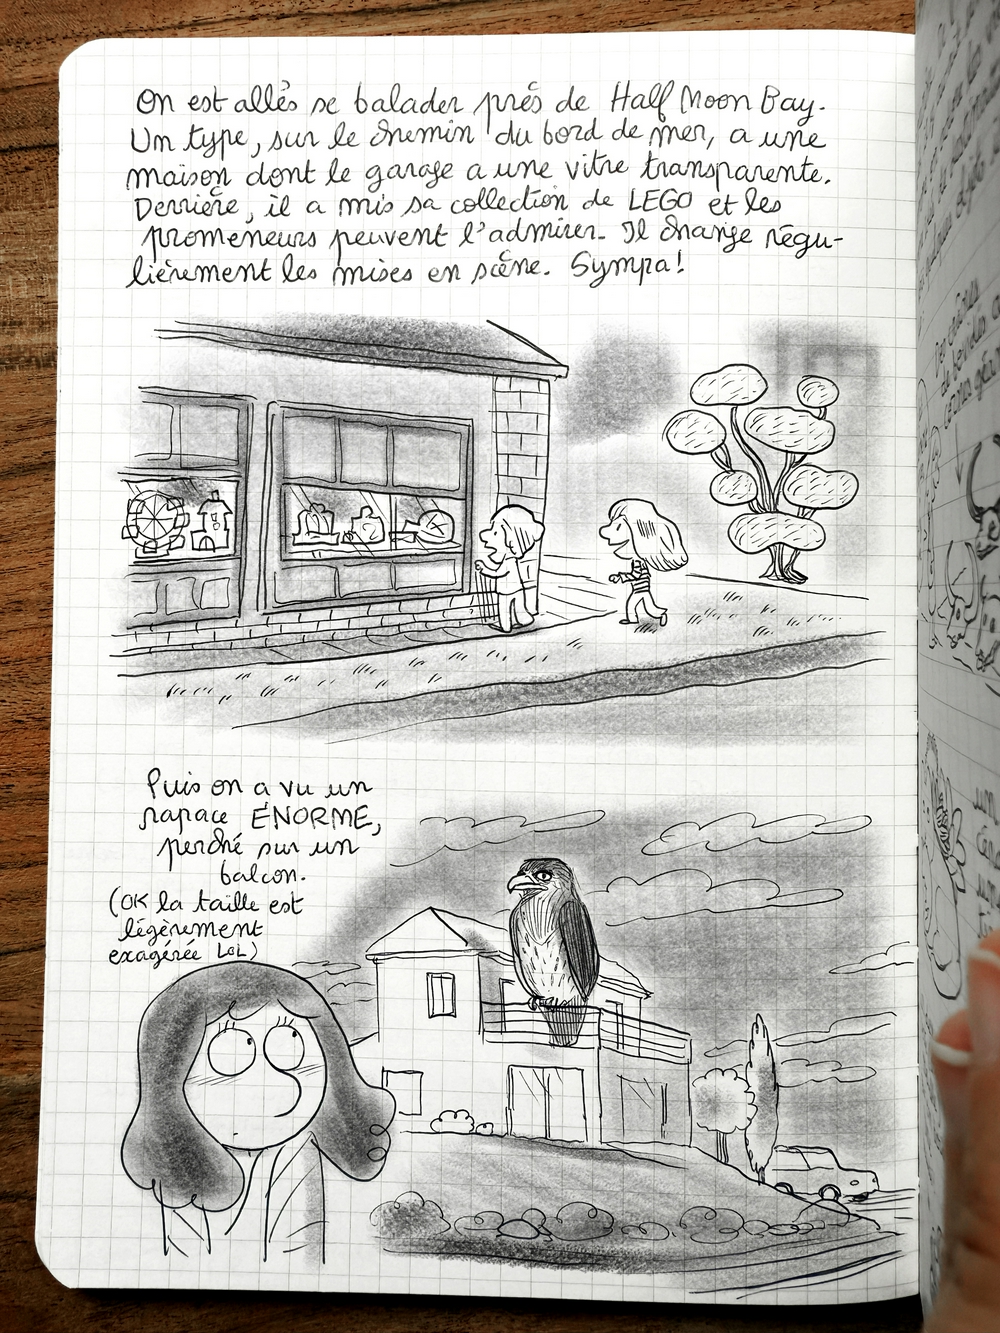 On est allés se balader près de Half Moon Bay.
Un type, sur le chemin du bord de mer, a une
maison dont le garage a une vitre transparente.
Derrière, il a mis sa collection de LEGO et les
promeneurs peuvent l'admirer. Il change régu-
lièrement les mises en scène. Sympa!
Puis on a vu un
rapace ÉNORME,
perché sur un
balcon.
(OK la taille est
légèrement
exagérée LOL)